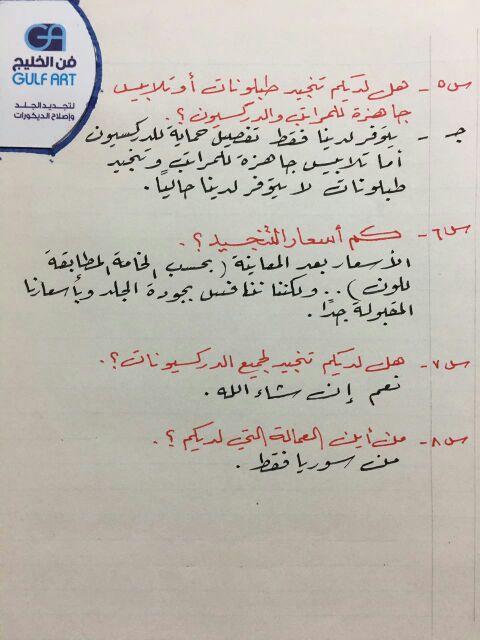 GA
فن الخليج
GULF ART
لتجديد الجلد
وإصلاح الديكورات
س٥- هل لديكم تنجيد طبلونات أو تلابيس
جاهزة للمراتب والدركسيون؟.
جـ - يتوفر لدينا فقط تفصيل حماية للدركسيون
أما تلابيس جاهزه للمراتب وتنجيد
طبلونات لا يتوفر لدينا حالياً.
س٦- كم أسعار التنجيد؟.
الأسعار بعد المعاينة (بحسب الخامة المطابقة
للون) .. ولكننا ننافس بجودة الجلد وبأسعارنا
المقبولة جداً.
س٧- هل لديكم تنجيد لجميع الدركسيونات؟.
نعم إن شاء الله.
س٨- من أين العمالة التي لديكم؟.
من سوريا فقط.